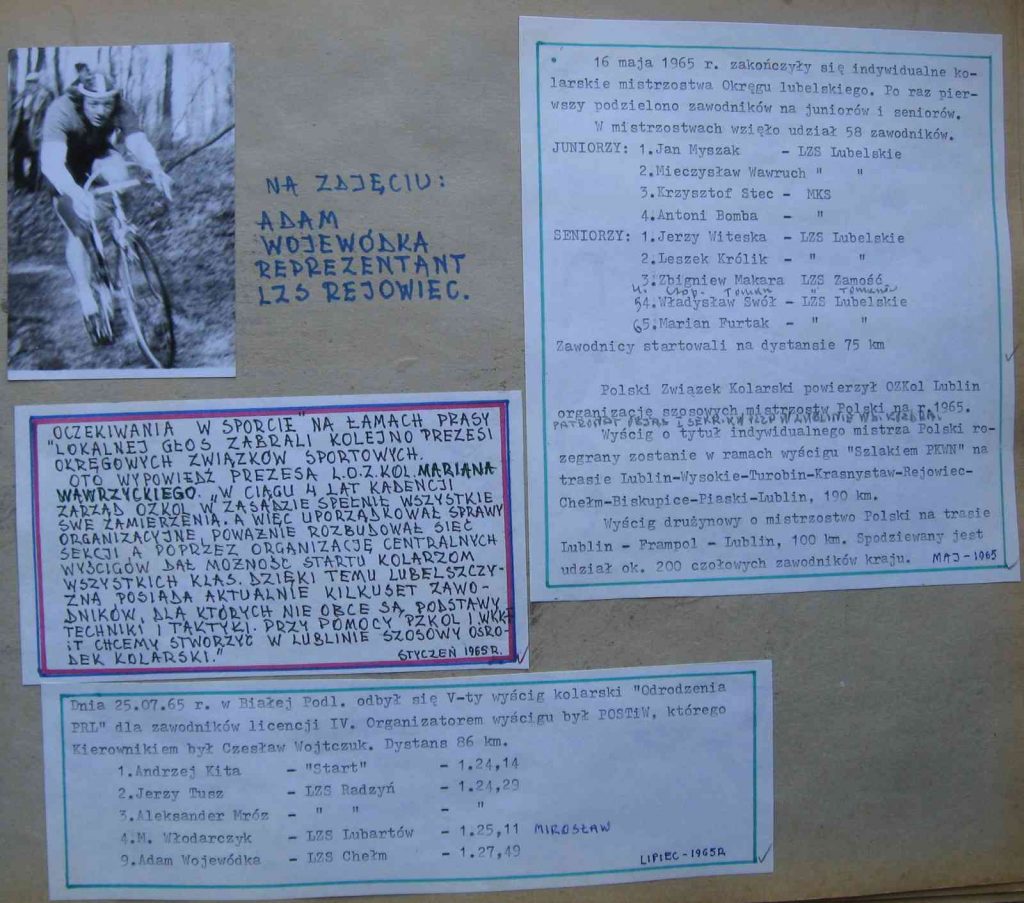 NA ZDJĘCIU:
ADAM
WOJEWÓDKA
REPREZENTANT
LZS REJOWIEC.
16 maja 1965 r. zakończyły się indywidualne ko-
larskie mistrzostwa Okręgu lubelskiego. Po raz pier-
wszy podzielono zawodników na juniorów i seniorów.
W mistrzostwach wzięło udział 58 zawodników.
JUNIORZY: 1.Jan Myszak - LZS Lubelskie
2.Mieczysław Wawruch " "
3.Krzysztof Stec - MKS
4.Antoni Bomba - "
SENIORZY: 1.Jerzy Witeska - LZS Lubelskie
2.Leszek Królik - " "
3.Zbigniew Makara LZS Zamość
4.
5.Władysław Swół - LZS Lubelskie
6.Marian Furtak - " "
Zawodnicy startowali na dystansie 75 km
Polski Związek Kolarski powierzył OZKol Lublin
organizację szosowych mistrzostw Polski na r.1965.
PATRONAT W LUBLINIE
Wyścig o tytuł indywidualnego mistrza Polski ro-
zegrany zostanie w ramach wyścigu "Szlakiem PKWN" na
trasie Lublin-Wysokie-Turobin-Krasnystaw-Rejowiec-
Chełm-Biskupice-Piaski-Lublin, 190 km.
Wyścig drużynowy o mistrzostwo Polski na trasie
Lublin - Frampol - Lublin, 100 km. Spodziewany jest
udział ok. 200 czołowych zawodników kraju. MAJ-1965
OCZEKIWANIA W SPORCIE" NA ŁAMACH PRASY
"LOKALNEJ GŁOS ZABRALI KOLEJNO PREZESI
OKRĘGOWYCH ZWIĄZKÓW SPORTOWYCH.
OTO WYPOWIEDŹ PREZESA L.O.Z.KOL. MARIANA
WAWRZYCKIEGO. „W CIĄGU 4 LAT KADENCJI
ZARZĄD OZKOL W ZASADZIE SPEŁNIŁ WSZYSTKIE
SWE ZAMIERZENIA. A WIĘC UPORZĄDKOWAŁ SPRAWY
ORGANIZACYJNE, POWAŻNIE ROZBUDOWAŁ SIEĆ
SEKCJI A POPRZEZ ORGANIZACJĘ CENTRALNYCH
WYŚCIGÓW DAŁ MOŻNOŚĆ STARTU KOLARZOM
WSZYSTKICH KLAS. DZIĘKI TEMU LUBELSZCZY-
ZNA POSIADA AKTUALNIE KILKUSET ZAWO-
DNIKÓW, DLA KTÓRYCH NIE OBCE SĄ PODSTAWY
TECHNIKI I TAKTYKI. PRZY POMOCY PZKOL I WKKF
iT CHCEMY STWORZYĆ W LUBLINIE SZOSOWY OŚRO-
DEK KOLARSKI." STYCZEŃ 1965R.
Dnia 25.07.65 r. w Białej Podl. odbył się V-ty wyścig kolarski "Odrodzenia
PRL" dla zawodników licencji IV. Organizatorem wyścigu był POSTiW, którego
Kierownikiem był Czesław Wojtczuk. Dystans 86 km.
1.Andrzej Kita - "Start" - 1.24,14
2.Jerzy Tusz - LZS Radzyń - 1.24,29
3.Aleksander Mróz - " " - "
4.M. Włodarczyk - LZS Lubartów - 1.25,11 MIROSŁAW
9.Adam Wojewódka - LZS Chełm - 1.27,49
LIPIEC-1965R